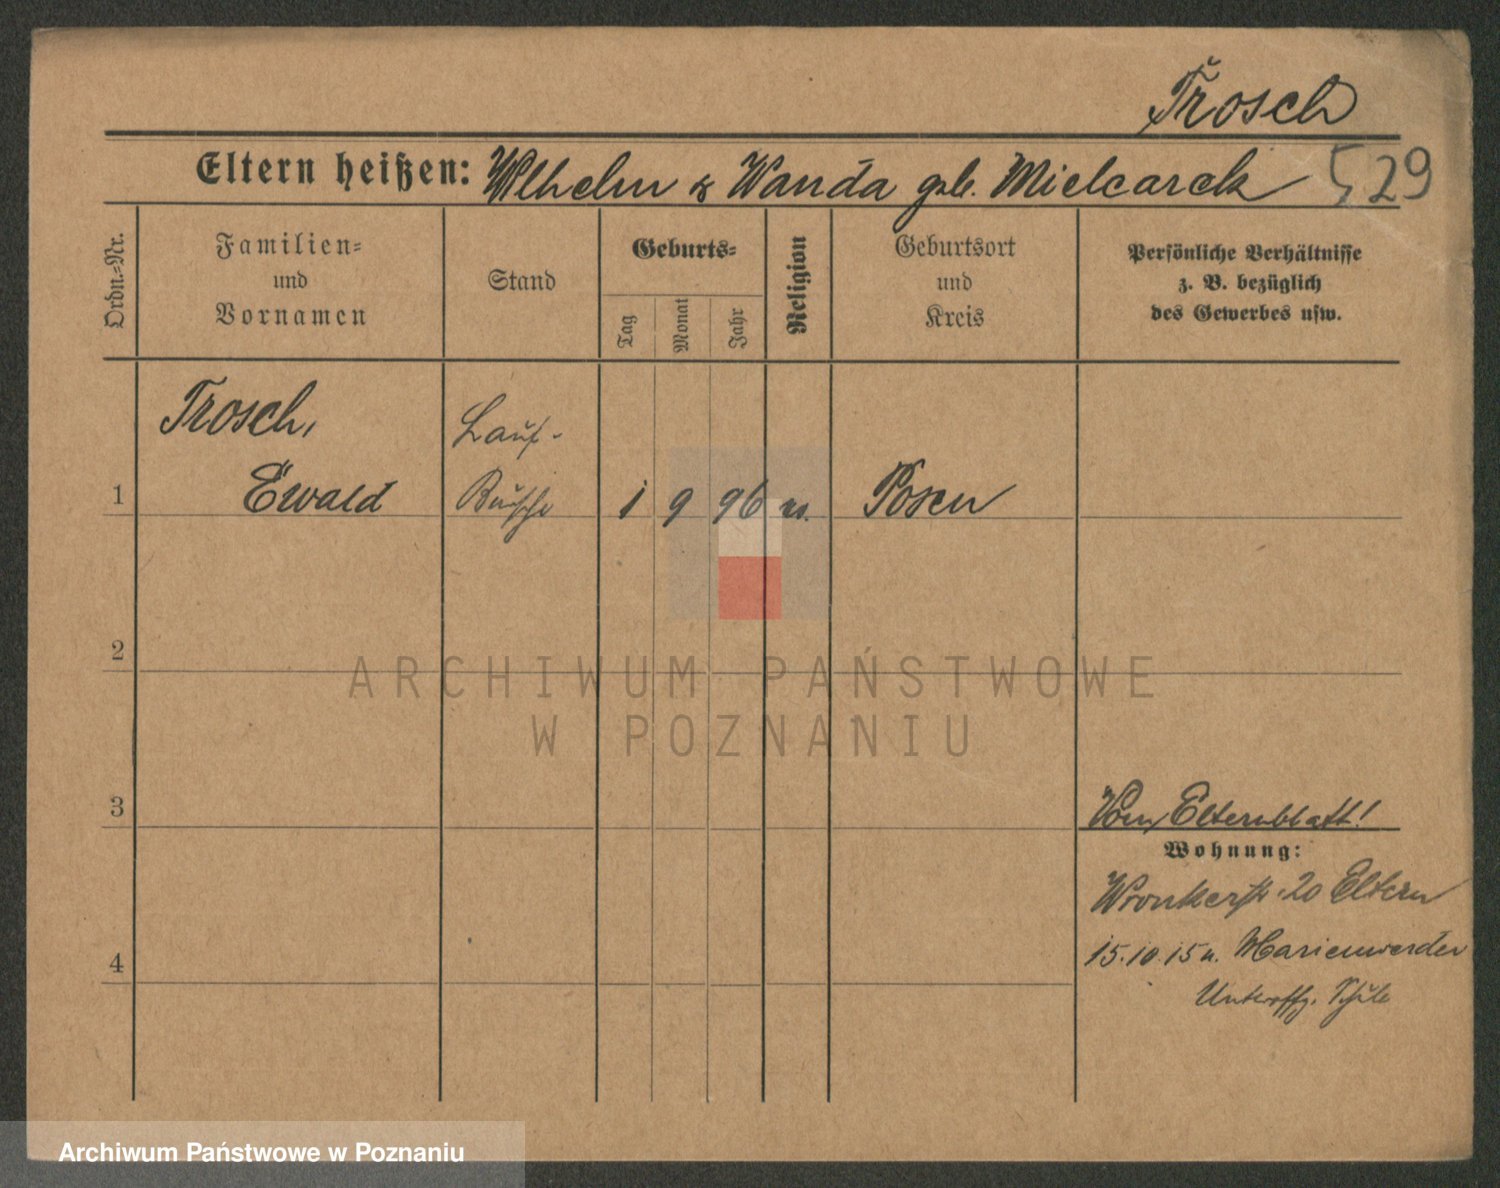 Trosch
Eltern heißen: Wilhelm & Wanda geb. Mielcarek
529
Ordn.-Nr.
Familien-
und
Vornamen
Stand
Geburts-
Tag
Monat
Jahr
Religion
Geburtsort
und
Kreis
Persönliche Verhältnisse
z. B. bezüglich
des Gewerbes usw.
Trosch,
Lauf-
1 Ewald Bursche 1 9 96 Posen
2
ARCHIWUM PAŃSTWOWE
W POZNANIU
3
Vom Elternblatt!
Wohnung:
Wronkerstr. 20 Eltern
4
15.10.15 n. Marienwerder
Unteroffz. Schule
Archiwum Państwowe w Poznaniu